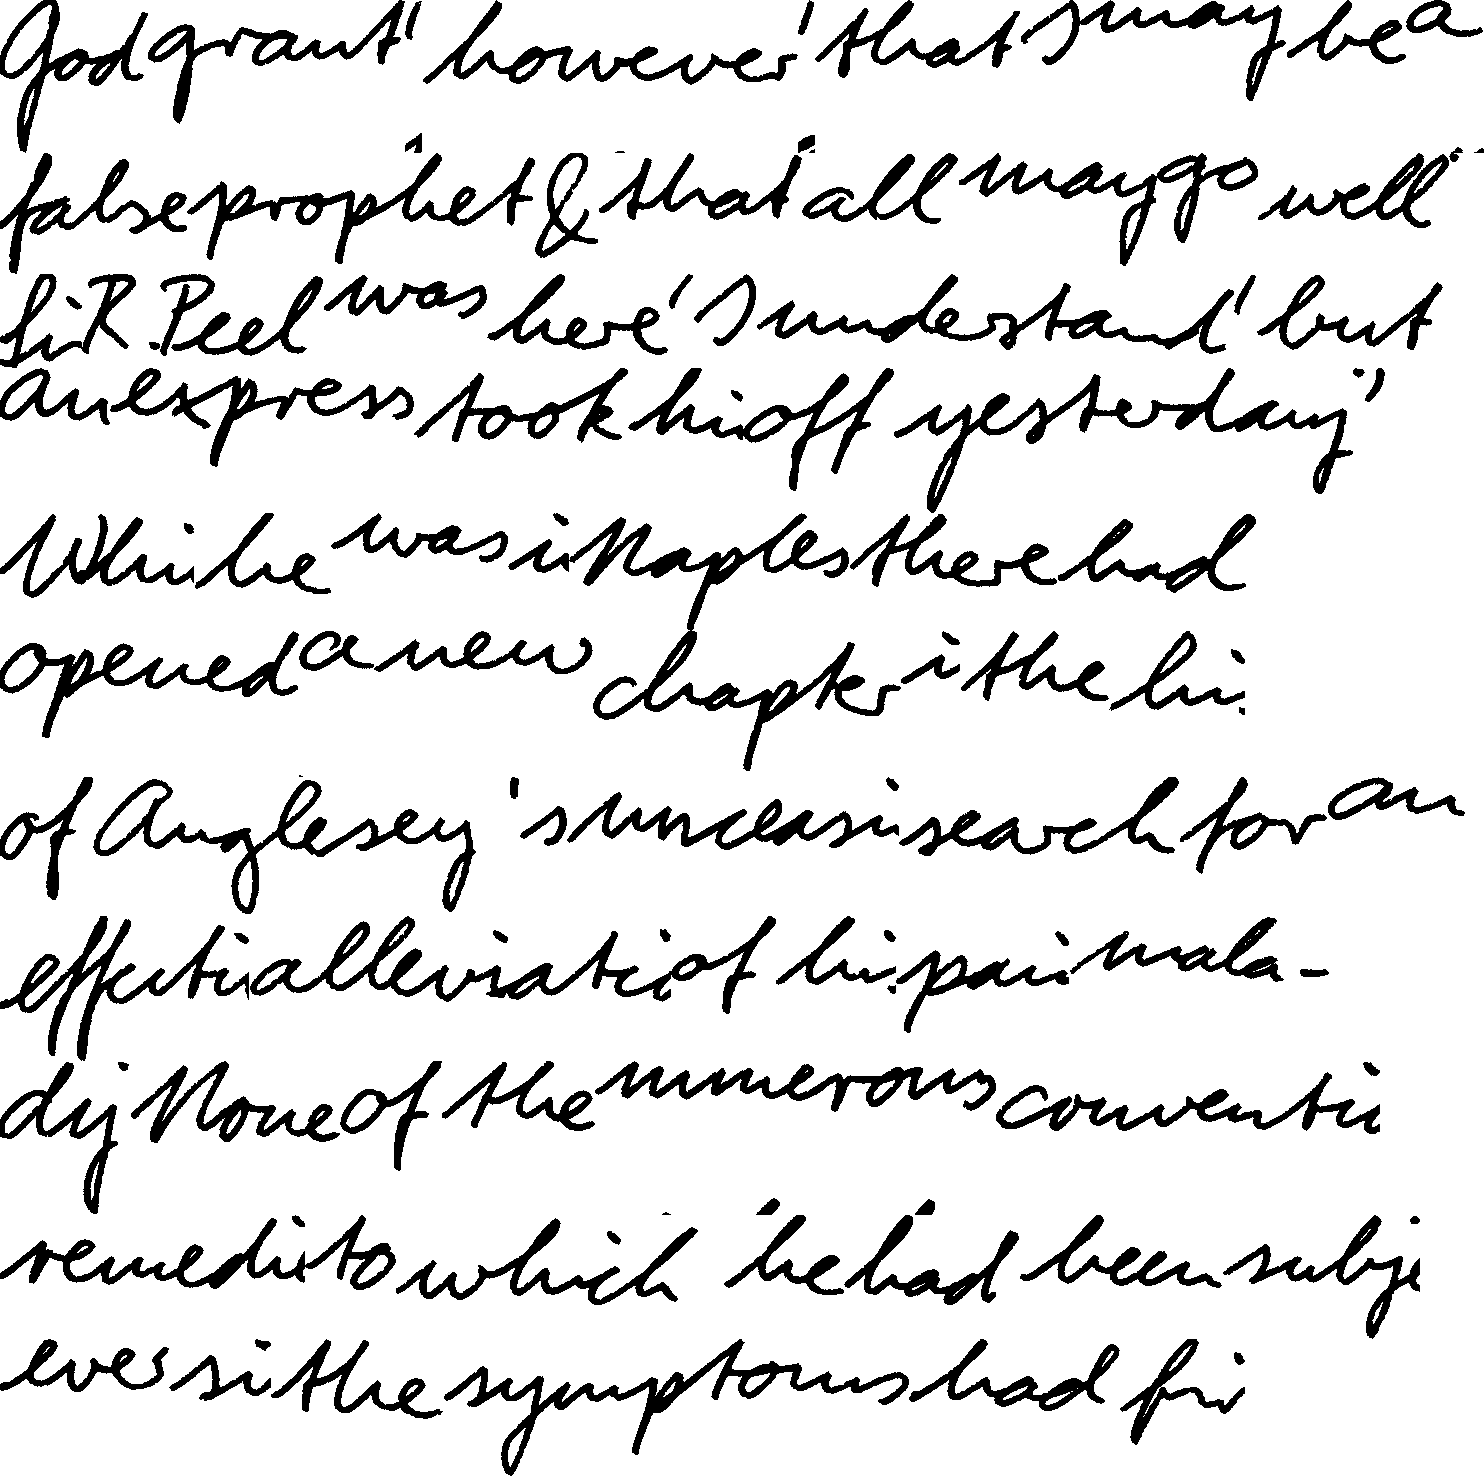 God grant' however' that I may be a
false prophet & that all may go well
Si R. Peel was here' I understand' but
an express took hi off yesterday'
Whi he was i Naples there had
opened a new chapter i the hi
of Anglesey's unceasi search for an
effecti alleviati of hi pai mala-
dy None of the numerous conventi
remedi to which he had been subje
ever si the symptoms had fir